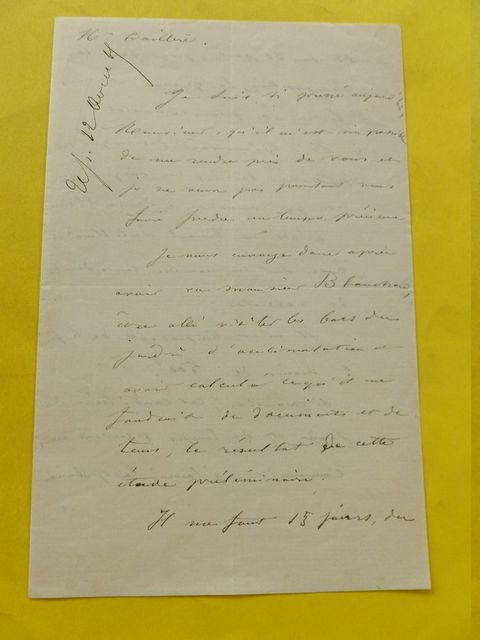 Mr Baillière.
Rép. 12 Avril
Je suis si pressé aujourd'hui,
Monsieur, qu'il m'est impossible
de me rendre près de vous et
je ne veux pas pourtant vous
faire perdre un temps précieux
Je vous envoye donc après
avoir vu monsieur Blanchard,
être allé visiter les bacs du
jardin d'acclimatation et
avoir calculé ce qu'il me
faudrait de documents et de
tems, le résultat de cette
étude préliminaire.
Il me faut 15 jours, du